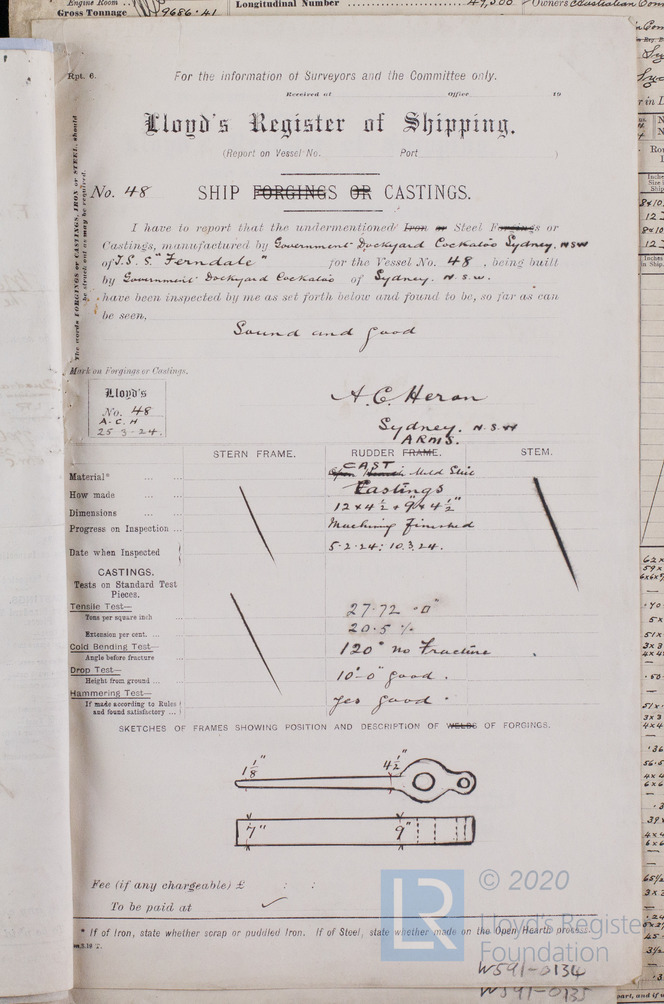 Engine Room
Gross Tonnage 9686.41
Longitudinal Number 47,500
Owners Australian Com
Rpt. 6.
For the information of Surveyors and the Committee only.
Received at Office 19
Lloyd's Register of Shipping.
(Report on Vessel No. Port )
The words FORGINGS or CASTINGS, IRON or STEEL, should
be struck out as may be required.
No. 48 SHIP FORGINGS OR CASTINGS.
I have to report that the undermentioned Iron or Steel Forgings or
Castings, manufactured by Government Dockyard Cockatoo Sydney, NSW
of T.S.S. "Ferndale" for the Vessel No. 48, being built
by Government Dockyard Cockatoo of Sydney. N.S.W.
have been inspected by me as set forth below and found to be, so far as can
be seen,
Sound and good
Mark on Forgings or Castings.
Lloyd's
No. 48
A.C.H
25.3-24.
A. C. Heron
Sydney. N.S.W
ARMS.
STERN FRAME. RUDDER FRAME. STEM.
CAST
Material* Mild Steel
How made Castings
Dimensions 12 x 4½ + 9" x 4½"
Progress on Inspection Machinery finished
Date when Inspected 5-2-24; 10.3.24.
CASTINGS.
Tests on Standard Test
Pieces.
Tensile Test—
Tons per square inch 27.72
Extension per cent. 20.5 %
Cold Bending Test—
Angle before fracture 120° no Fracture
Drop Test—
Height from ground 10'-0" good.
Hammering Test—
If made according to Rules
and found satisfactory yes good.
SKETCHES OF FRAMES SHOWING POSITION AND DESCRIPTION OF WELDS OF FORGINGS.
1⅛" 4½"
7" 9"
Fee (if any chargeable) £ : :
To be paid at
* If of Iron, state whether scrap or puddled Iron. If of Steel, state whether made on the Open Hearth process.
LR © 2020
Lloyd's Register
Foundation
W591-0134
W591-0135